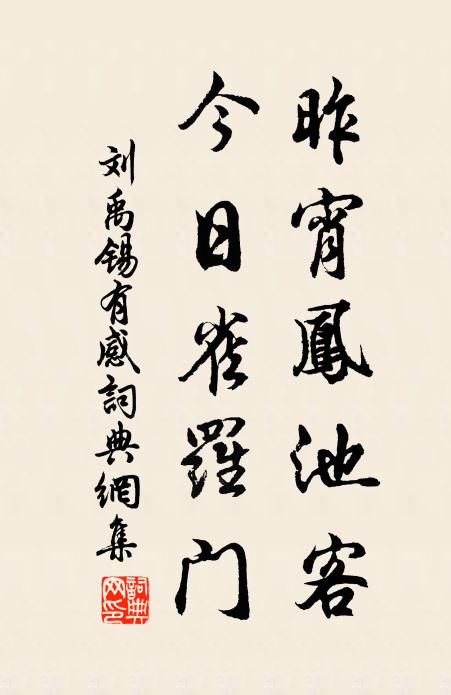 昨宵鳳池客
今日雀羅门
刘禹锡有感詞典網集
詞典網印